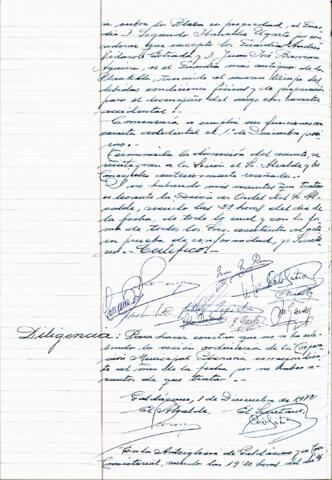 se cubra la Plaza en propiedad, al
D. Segundo Ugarte por con-
siderar que excepto los Guardias
D. Juan José Barrena
Aguirre, es el Guardia más antiguo de
la plantilla, reuniendo al mismo tiempo las
debidas condiciones físicas y de preparación
para el desempeño del cargo con carácter
accidental.
Comenzará a cumplir sus funciones con
carácter accidental el 1º de Diciembre pró-
ximo.
Terminada la discusión del asunto, se
reintegran a la Sesión el Sr. Alcalde y los
Concejales anteriormente reseñados.
Y no habiendo más asuntos que tratar
se levantó la Sesión de Orden del Sr. Al-
calde, siendo las 22 horas del día de
la fecha, de todo lo cual y con la fir-
ma de todos los Sres. asistentes al acto
en prueba de conformidad, yo Secreta-
rio.- Certifico.-
Diligencia: Para hacer constar que no se ha ce-
lebrado la sesión ordinaria de la Corpora-
ción Municipal Plenaria correspondiente
al mes de la fecha por no haber a-
suntos de que tratar.-
Galdácano, 1 de Diciembre de 1972
El Alcalde, El Secretario,
En la Anteiglesia de Galdácano y su Casa
Consistorial, siendo las 19,30 horas del día